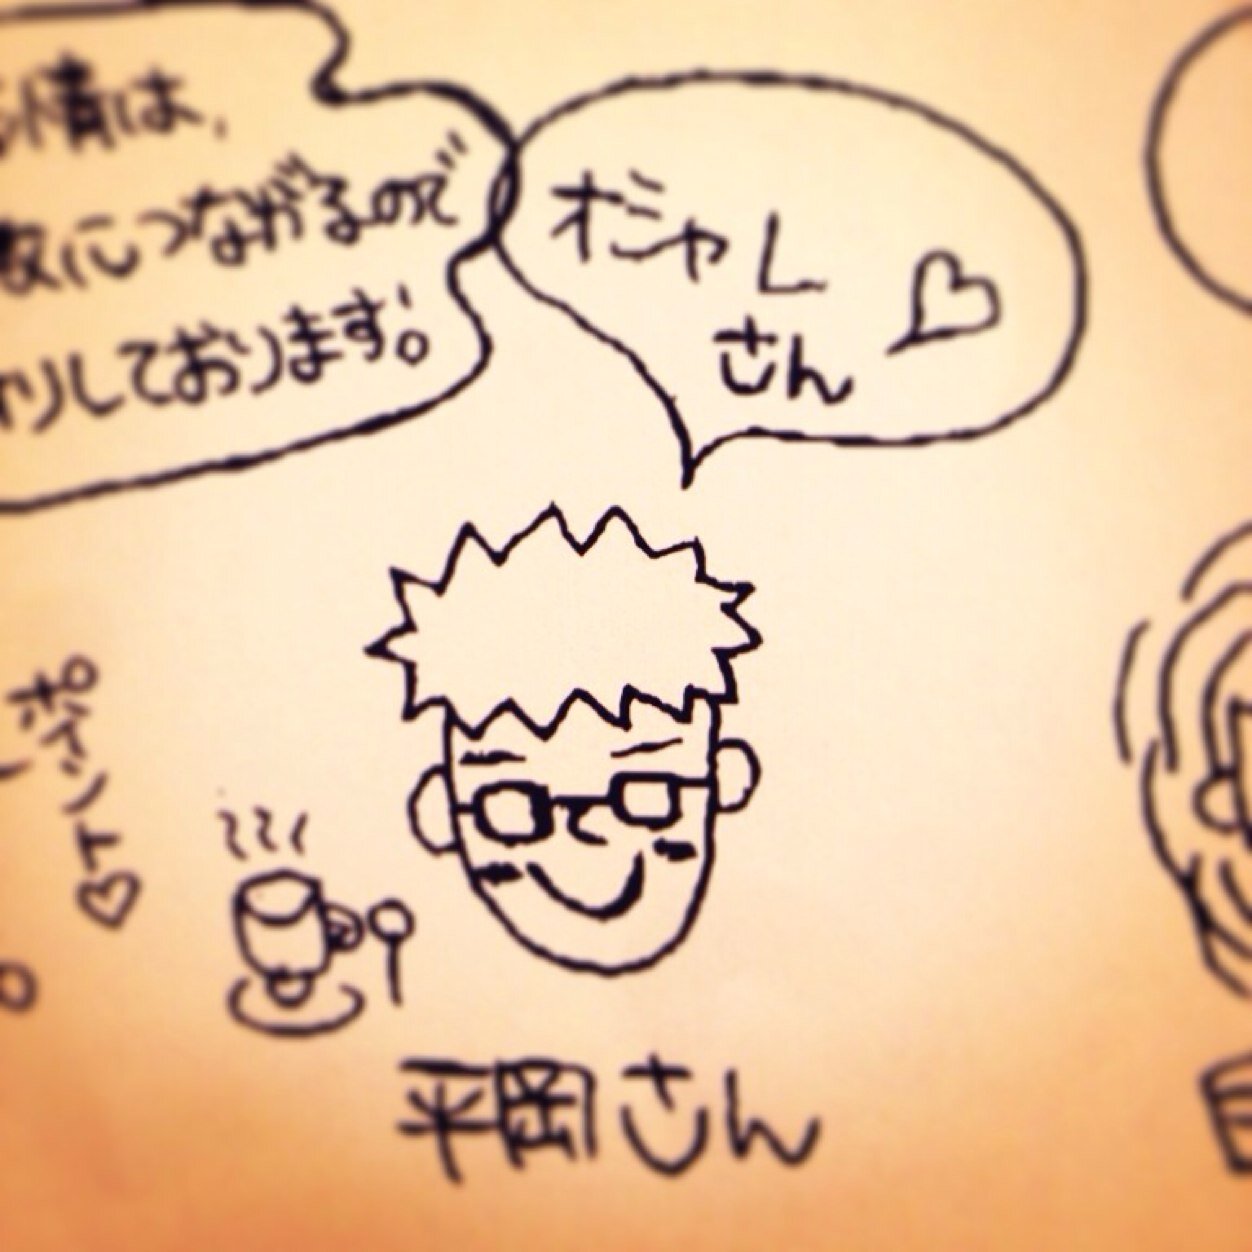 情は、
につながるので
りしております。
オシャレ
さん
ポイント
平岡さん